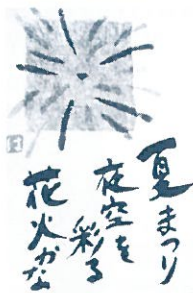 夏まつり
夜空を
彩る
花火かな